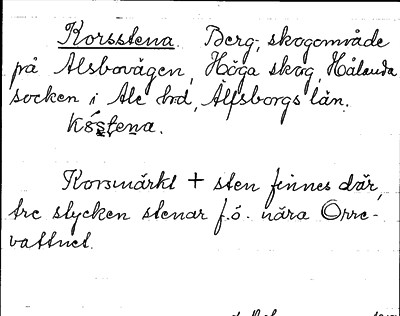 Korsstena. Berg, skogområde
på Alsbovägen, Höga skog, Hålanda
socken i Ale hrd, Älfsborgs län.
Kåstena.
Korsmärkt + sten finnes där,
tre stycken stenar f.ö. nära Orre-
vattnet.